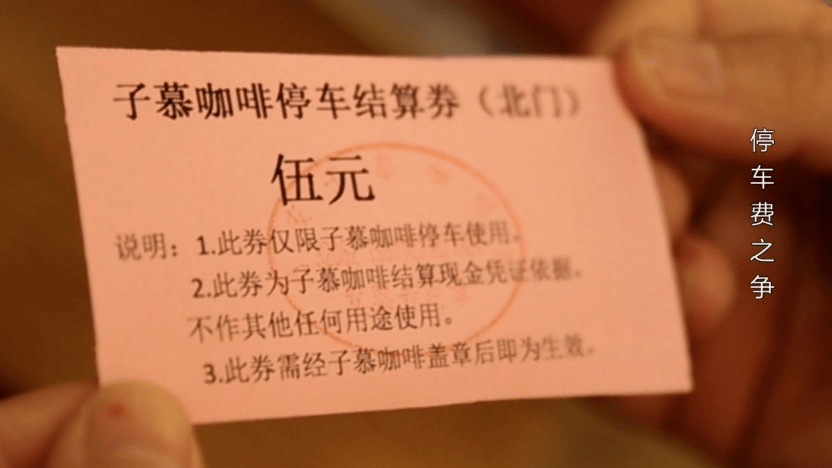 子慕咖啡停车结算券（北门）
伍元
说明：1.此券仅限子慕咖啡停车使用。
2.此券为子慕咖啡结算现金凭证依据。
不作其他任何用途使用。
3.此券需经子慕咖啡盖章后即为生效。
停车费之争